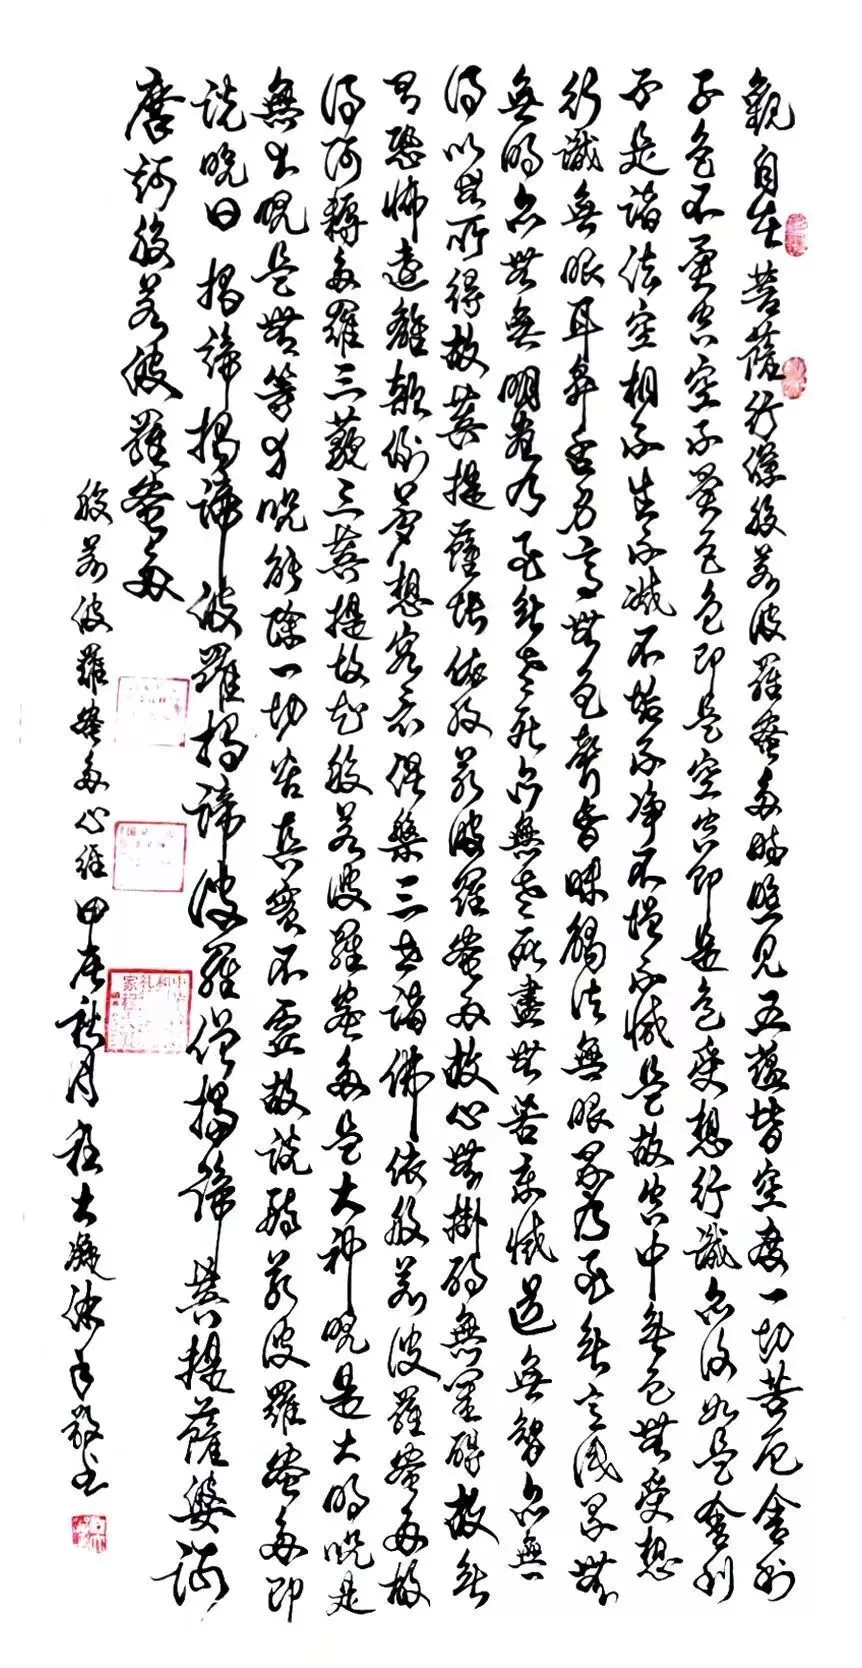 觀自在菩薩行深般若波羅蜜多時照見五蘊皆空度一切苦厄舍利
子色不異空空不異色色即是空空即是色受想行識亦復如是舍利
子是諸法空相不生不滅不垢不净不增不減是故空中無色無受想
行識無眼耳鼻舌身意無色聲香味觸法無眼界乃至無意識界無
無明亦無無明盡乃至無老死亦無老死盡無苦集滅道無智亦無
得以無所得故菩提薩埵依般若波羅蜜多故心無掛礙無罣礙故無
有恐怖遠離顛倒夢想究竟涅槃三世諸佛依般若波羅蜜多故
得阿耨多羅三藐三菩提故知般若波羅蜜多是大神咒是大明咒是
無上咒是無等等咒能除一切苦真實不虛故說般若波羅蜜多即
說咒曰 揭諦揭諦波羅揭諦波羅僧揭諦 菩提薩婆訶
摩訶般若波羅蜜多
般若波羅蜜多心經 秋月程大 敬書